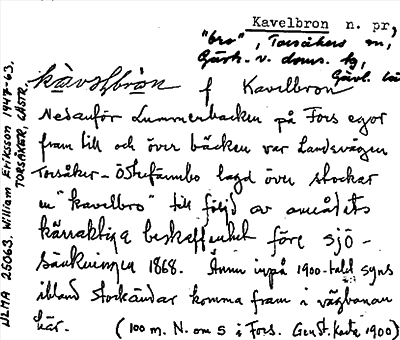 Kavelbron n. pr,
"bro", Torsåkers sn,
Gästr. v. doms. hg,
Gävl. län
kàvəlbròn f Kavelbron
Nedanför Lummerbacken på Fors egor
fram till och över bäcken var landsvägen
Torsåker - Österfärnebo lagd över stockar
en "kavelbro" till följd av områdets
kärraktiga beskaffenhet före sjö-
sänkningen 1868. Ännu inpå 1900-talet syns
ibland stockändar komma fram i vägbanan
här. (100 m. N. om S i Fors. Gen.St. karta 1900)
ULMA 25063. William Eriksson 1947-63.
TORSÅKER, GÄSTR.